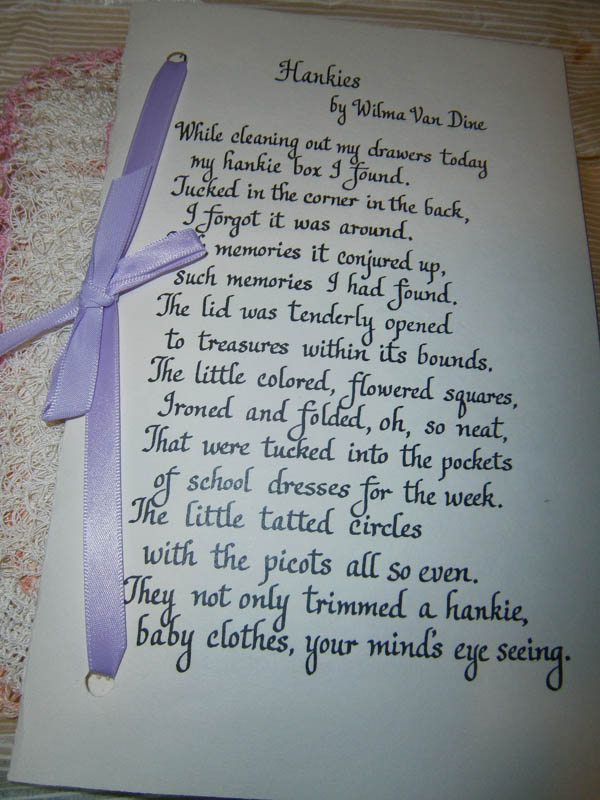 Hankies
by Wilma Van Dine
While cleaning out my drawers today
my hankie box I found.
Tucked in the corner in the back,
I forgot it was around.
memories it conjured up,
such memories I had found.
The lid was tenderly opened
to treasures within its bounds.
The little colored, flowered squares,
Ironed and folded, oh, so neat,
That were tucked into the pockets
of school dresses for the week.
The little tatted circles
with the picots all so even.
They not only trimmed a hankie,
baby clothes, your mind's eye seeing.